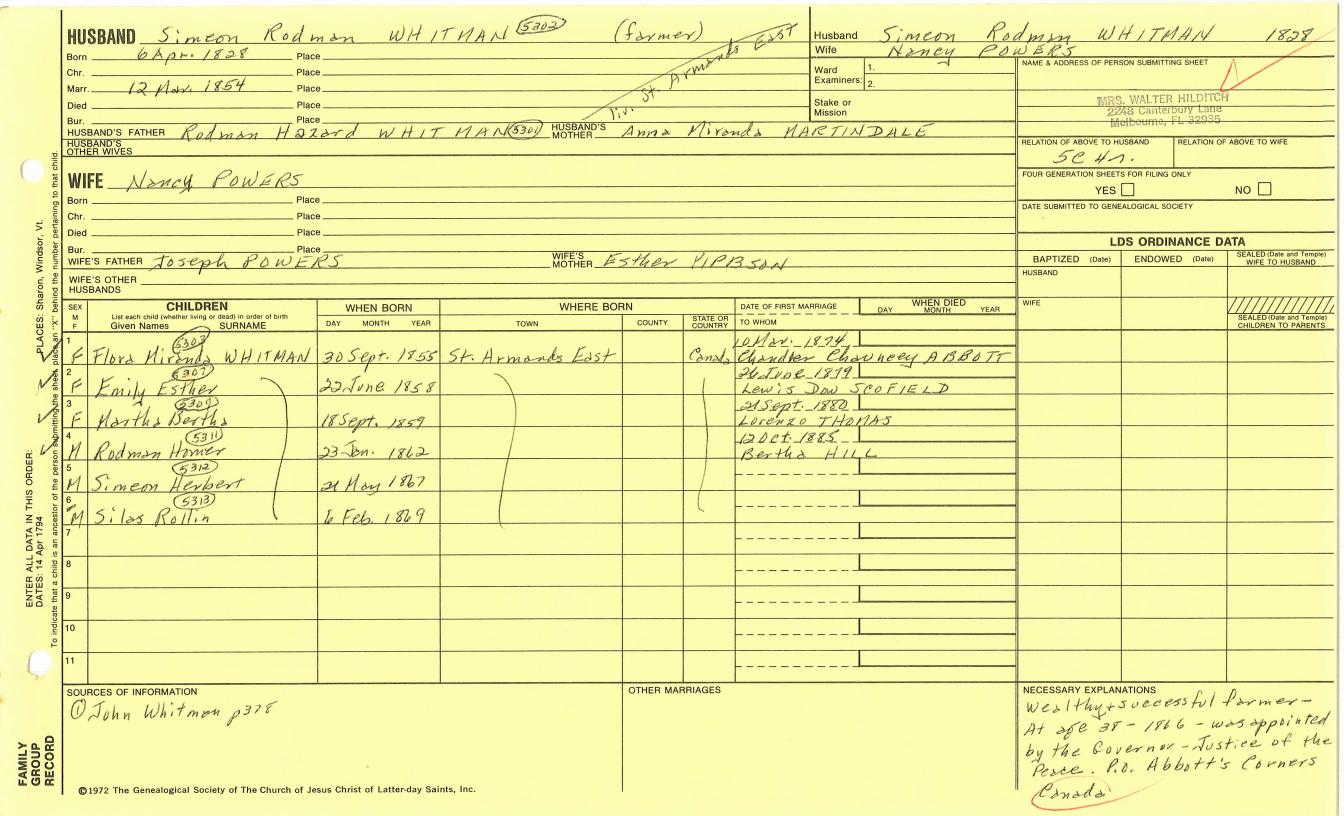 HUSBAND Simeon Rodman WHITMAN 5302 (farmer)
Born 6 Apr. 1828 Place
Chr. Place
Marr. 12 Mar. 1854 Place
Died Place
Bur. Place
liv. St. Armands East
HUSBAND'S FATHER Rodman Hazard WHITMAN 5301 HUSBAND'S MOTHER Anna Miranda MARTINDALE
HUSBAND'S OTHER WIVES
WIFE Nancy POWERS
Born Place
Chr. Place
Died Place
Bur. Place
WIFE'S FATHER Joseph POWERS WIFE'S MOTHER Esther
WIFE'S OTHER HUSBANDS
Husband Simeon Rodman WHITMAN 1828
Wife Nancy POWERS
Ward Examiners: 1.
2.
Stake or Mission
NAME & ADDRESS OF PERSON SUBMITTING SHEET
MRS. WALTER HILDITCH
2248 Canterbury Lane
Melbourne, FL 32935
RELATION OF ABOVE TO HUSBAND RELATION OF ABOVE TO WIFE
5C 4r.
FOUR GENERATION SHEETS FOR FILING ONLY
YES NO
DATE SUBMITTED TO GENEALOGICAL SOCIETY
LDS ORDINANCE DATA
BAPTIZED (Date) ENDOWED (Date) SEALED (Date and Temple) WIFE TO HUSBAND
HUSBAND
WIFE
SEALED (Date and Temple) CHILDREN TO PARENTS
SEX M F CHILDREN WHEN BORN WHERE BORN DATE OF FIRST MARRIAGE WHEN DIED
List each child (whether living or dead) in order of birth
Given Names SURNAME DAY MONTH YEAR TOWN COUNTY STATE OR COUNTRY TO WHOM DAY MONTH YEAR
1 5303 10 Mar. 1874
F Flora Miranda WHITMAN 30 Sept. 1855 St. Armands East Canada Chandler Chauncey ABBOTT
2 5307 26 June 1879
F Emily Esther 22 June 1858 Lewis Dow SCOFIELD
3 5309 21 Sept. 1880
F Martha Bertha 18 Sept. 1859 Lorenzo THOMAS
4 5311 12 Oct. 1885
M Rodman Homer 23 Jan. 1862 Bertha HILL
5 5312
M Simeon Herbert 21 May 1867
6 5313
M Silas Rollin 6 Feb. 1869
7
8
9
10
11
SOURCES OF INFORMATION
① John Whitman p378
OTHER MARRIAGES
NECESSARY EXPLANATIONS
Wealthy + successful farmer -
At age 38 - 1866 - was appointed
by the Governor - Justice of the
Peace. P.O. Abbott's Corners
Canada
©1972 The Genealogical Society of The Church of Jesus Christ of Latter-day Saints, Inc.
FAMILY GROUP RECORD
ENTER ALL DATA IN THIS ORDER:
DATES: 14 Apr 1794 PLACES: Sharon, Windsor, Vt.
To indicate that a child is an ancestor of the person submitting the sheet, place an "X" behind the number pertaining to that child.